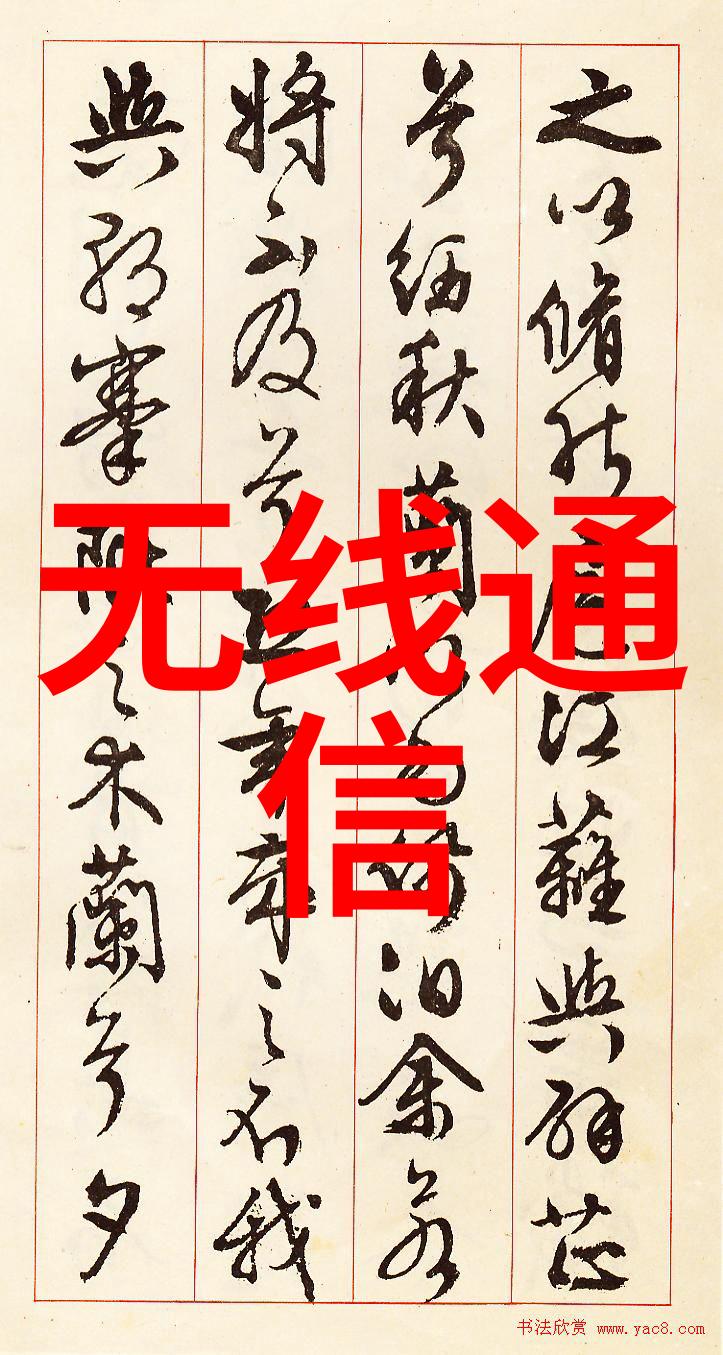 之以脩能扈江蘺與辟芷
兮紉秋蘭以為佩汩余若
將不及兮恐年歲之不我
與朝搴阰之木蘭兮夕
无线通
信
书法欣赏 www.yac8.com